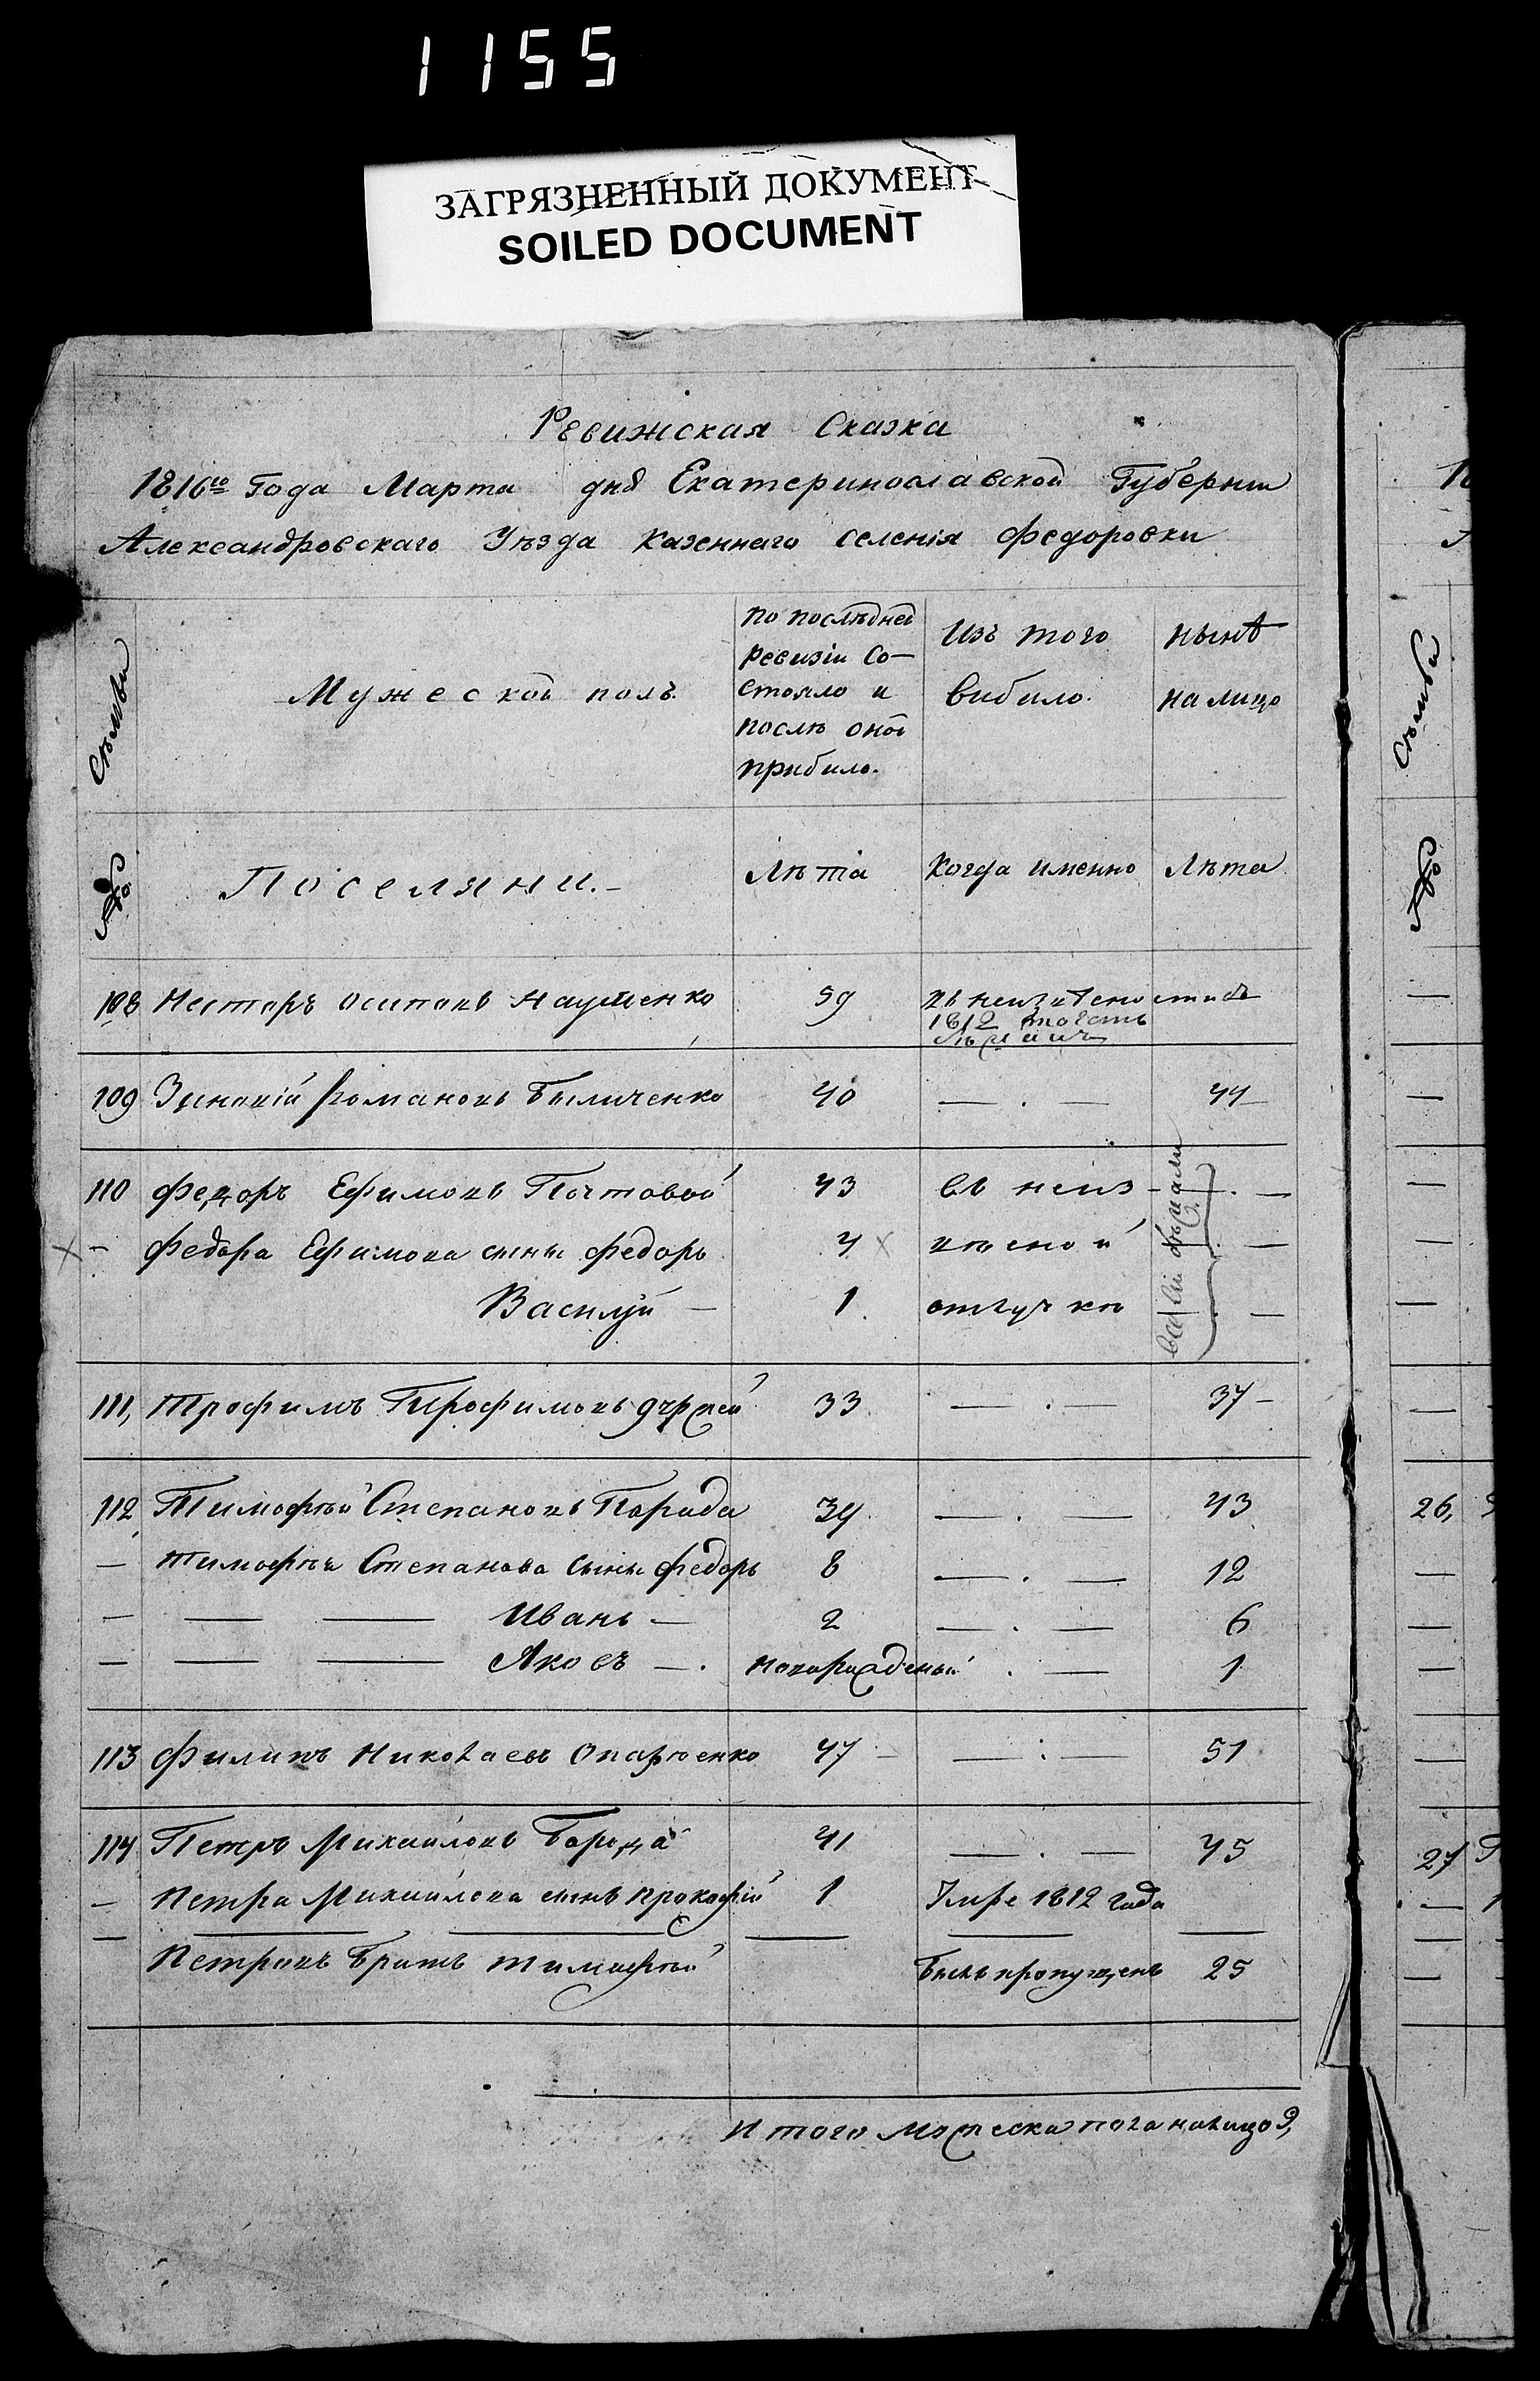 1155
ЗАГРЯЗНЕННЫЙ ДОКУМЕНТ
SOILED DOCUMENT
Ревижская Сказка
1816го Года Марта дня Екатеринославской Губернии
Александровскаго Уѣзда казеннаго селенія Федоровки
Мужескои полъ
по послѣднеи
ревизіи со-
стояло и
послѣ онои
прибило.
Изъ того
вибило.
нынѣ
на лицо
Поселяни.
Лѣта
Когда именно
Лѣта
108 Несторъ Осиповъ Науменко 59
1812
109 Романовъ Быличенко 40 44
110 Федоръ Ефимовъ Почтовой 43 въ неиз-
Федора Ефимова сыны Федоръ 4 вѣсной
Василій 1 отлучки
111, Трофимъ Трофимовъ 33 37
112 Тимофѣй Степановъ Парада 39 43
Тимофѣя Степанова сыны Федоръ 8 12
Иванъ 2 6
Яковъ новорожденый 1
113 Филипъ Николаевъ 47 51
114 Петръ Михайловъ Борода 41 45
Петра Михайлова сынъ Прокофій 1 Умре 1812 года
Петровъ братъ Тимофѣй былъ пропущенъ 25
Итого мужеска пола налицо 9,
26,
27